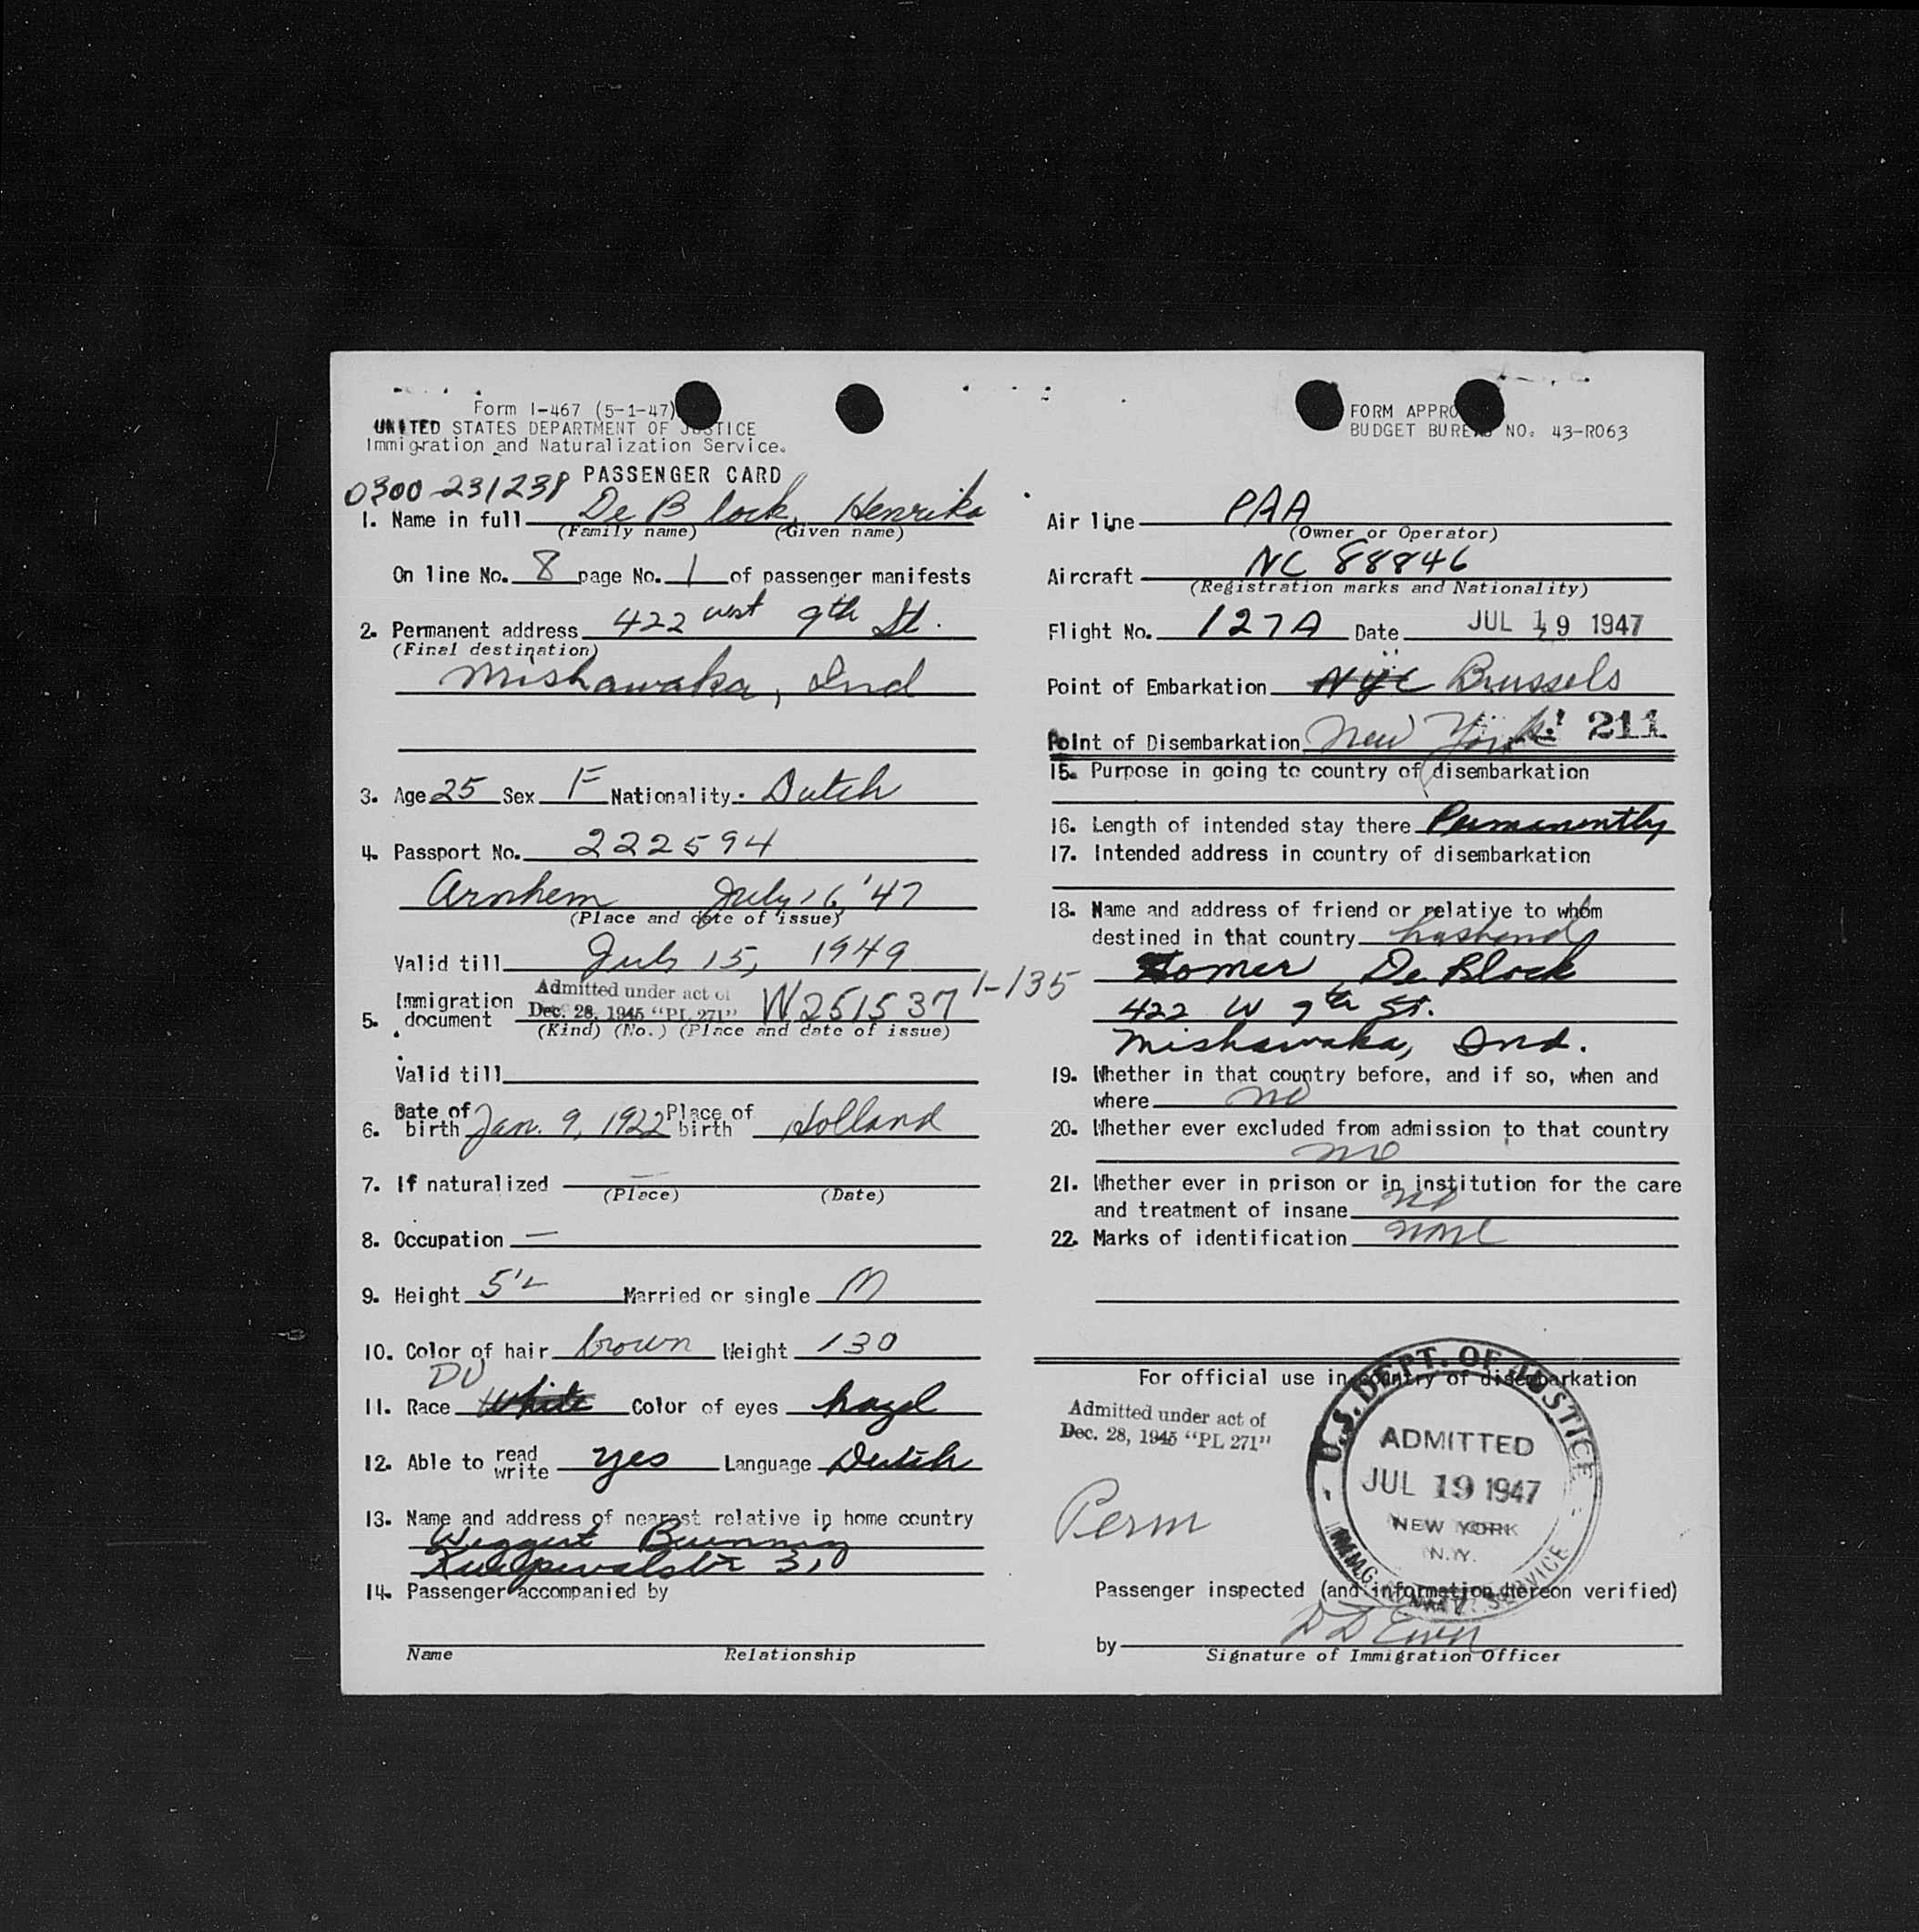 Form I-467 (5-1-47)
UNITED STATES DEPARTMENT OF JUSTICE
Immigration and Naturalization Service.
PASSENGER CARD
0300-231238
1. Name in full De Block, Henrika
(Family name) (Given name)
On line No. 8 page No. 1 of passenger manifests
2. Permanent address 422 west 9th St.
(Final destination)
Mishawaka, Ind
3. Age 25 Sex F Nationality Dutch
4. Passport No. 222594
Arnhem July 16, '47
(Place and date of issue)
Valid till July 15, 1949
5. Immigration document Admitted under act of Dec. 28, 1945 "PL 271" W251537 1-135
(Kind) (No.) (Place and date of issue)
Valid till
6. Date of birth Jan. 9, 1922 Place of birth Holland
7. If naturalized —
(Place) (Date)
8. Occupation —
9. Height 5'2 Married or single M
10. Color of hair brown Weight 130
DU
11. Race White Color of eyes hazel
12. Able to read write yes Language Dutch
13. Name and address of nearest relative in home country
31
14. Passenger accompanied by
Name Relationship
FORM APPRO
BUDGET BUREAU NO. 43-R063
Air line PAA
(Owner or Operator)
Aircraft NC 88846
(Registration marks and Nationality)
Flight No. 127A Date JUL 19 1947
Point of Embarkation NYC Brussels
Point of Disembarkation New York 211
15. Purpose in going to country of disembarkation
16. Length of intended stay there Permanently
17. Intended address in country of disembarkation
18. Name and address of friend or relative to whom
destined in that country husband
Homer De Block
422 W 9th St.
Mishawaka, Ind.
19. Whether in that country before, and if so, when and
where no
20. Whether ever excluded from admission to that country
no
21. Whether ever in prison or in institution for the care
and treatment of insane no
22. Marks of identification none
For official use in country of disembarkation
Admitted under act of
Dec. 28, 1945 "PL 271"
Perm
U.S. DEPT. OF JUSTICE
ADMITTED
JUL 19 1947
NEW YORK
N.Y.
IMMIG. SERVICE
Passenger inspected (and information hereon verified)
by
Signature of Immigration Officer